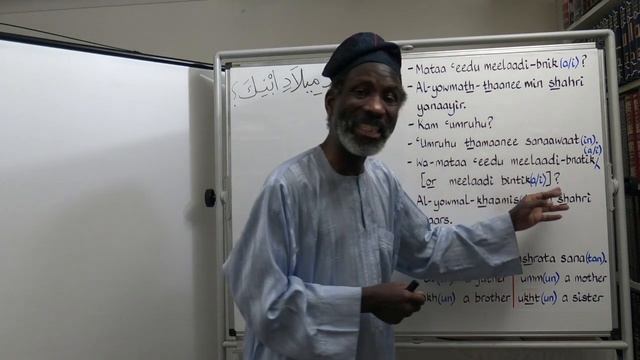 مِيلَادِ ابْنِيكَ؟
- Mataa ʿeedu meelaadi-bnik(a/i)?
- Al-yowmath-thaanee min shahri
yanaayir.
- Kam ʿumruhu?
- ʿUmruhu thamaanee sanaawaat(in).
- Wa-mataa ʿeedu meelaadi-bnatik(a/i)
[or meelaadi bintik(a/i)]?
Al-yowmal-khaamis shahri
shrota sana(tan).
(un) a father umm(un) a mother
akh(un) a brother ukht(un) a sister